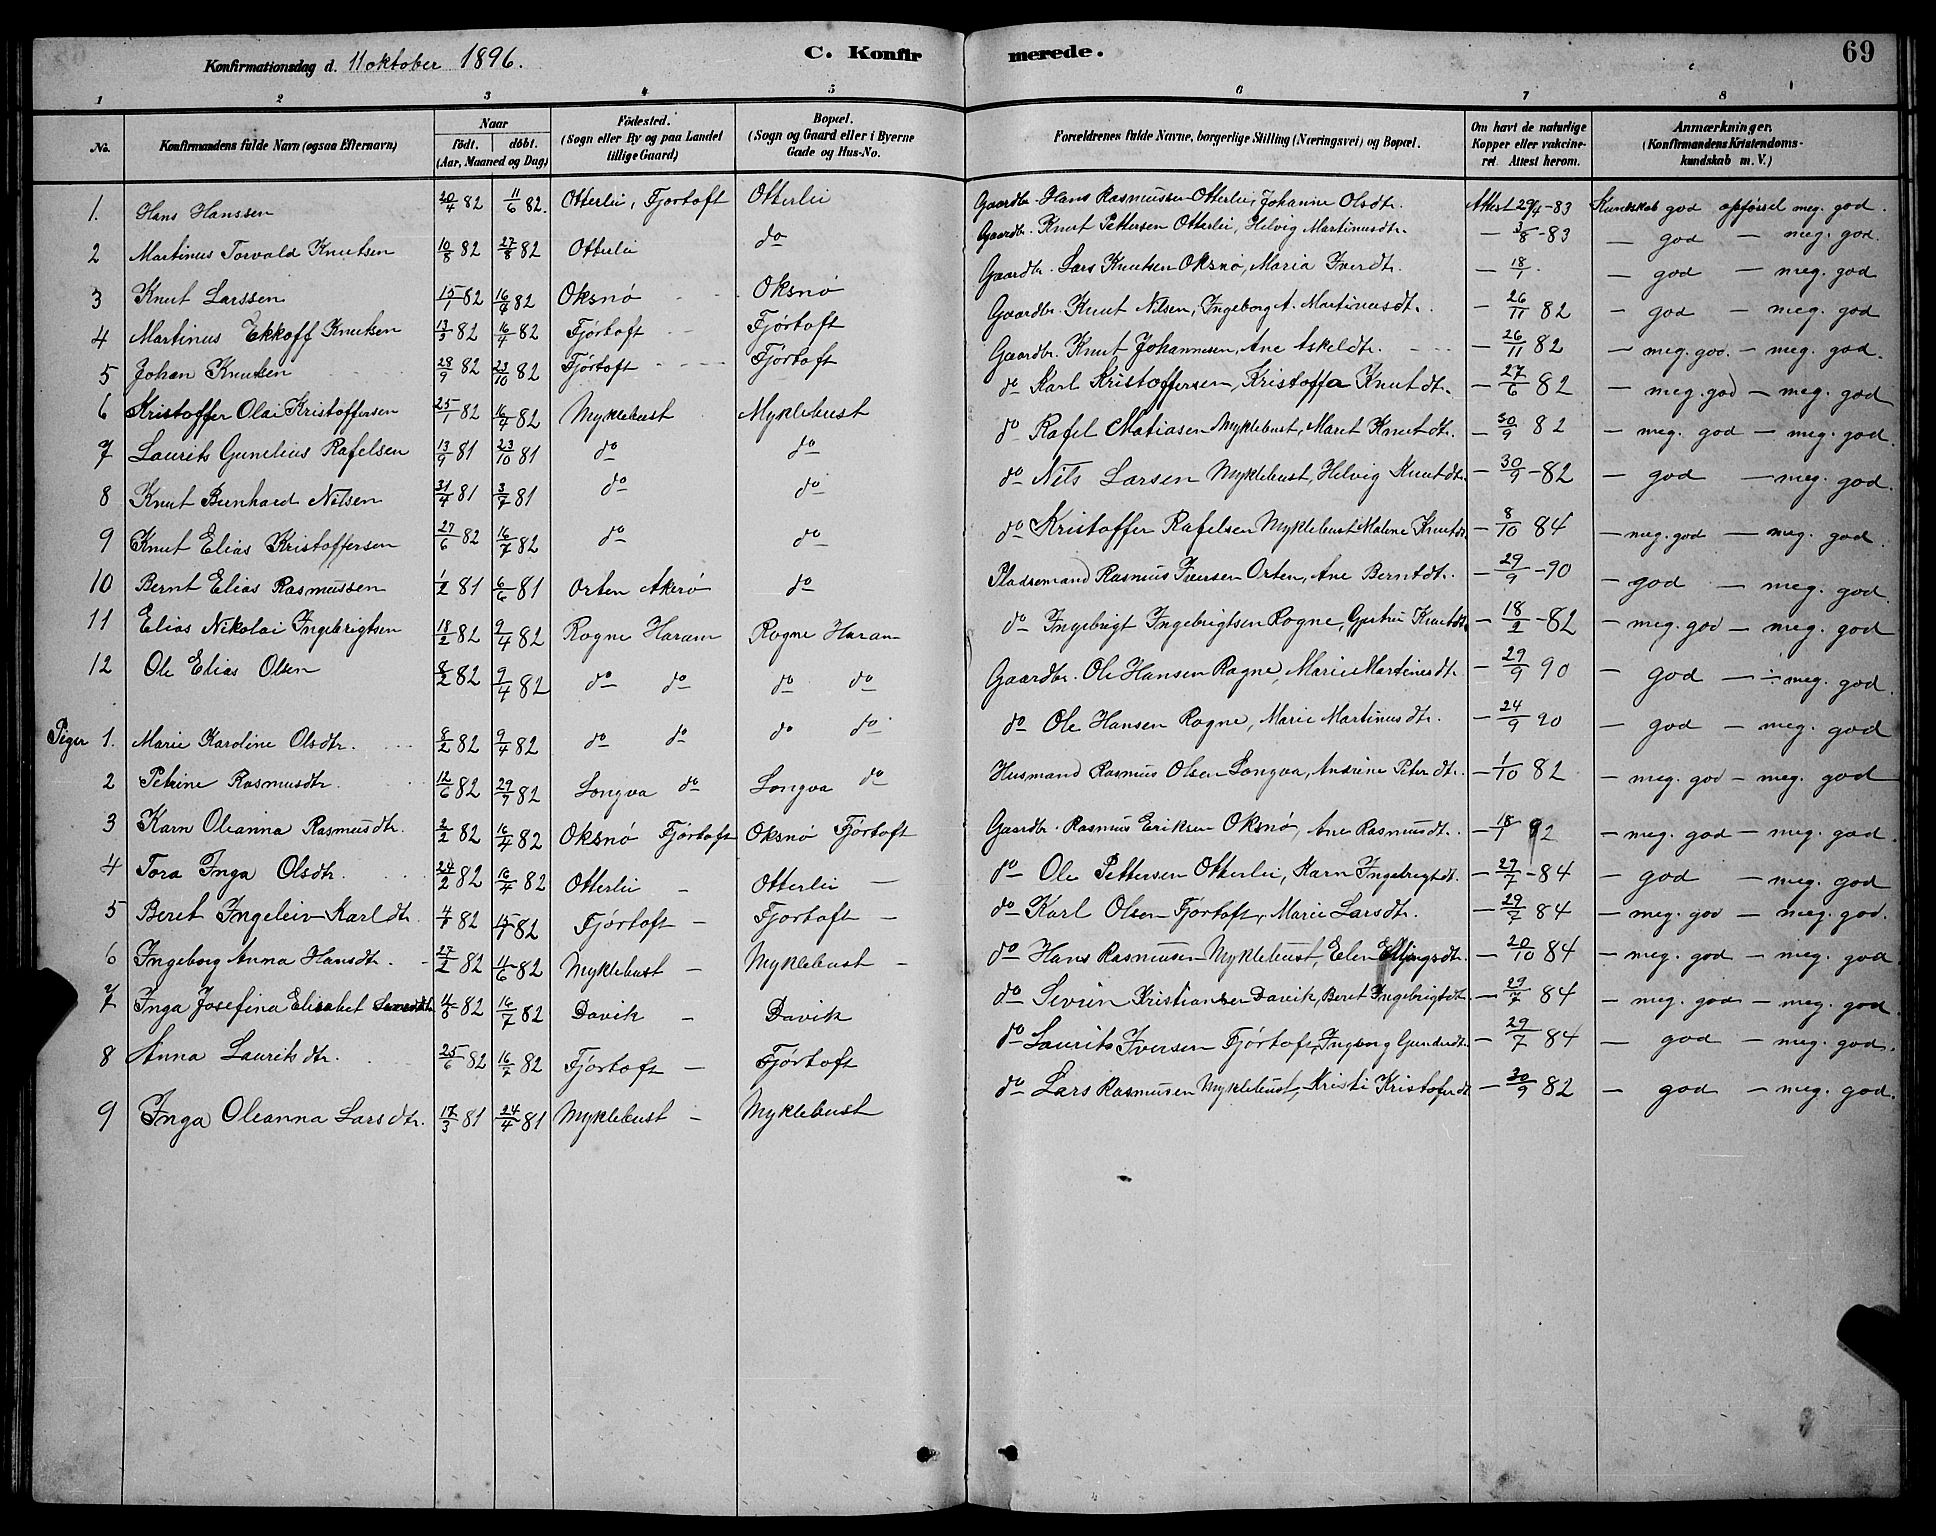 Konfirmationsdag d. 11 oktober 1896. C. Konfirmerede. 69
1 2 3 4 5 6 7 8
No. Konfirmandens fulde Navn (ogsaa Efternavn) Naar født. døbt. (Aar, Maaned og Dag) Fødested. (Sogn eller By og paa Landet tillige Gaard) Bopæl. (Sogn og Gaard eller i Byerne Gade og Hus-No. Forældrenes fulde Navne, borgerlige Stilling (Næringsvei) og Bopæl. Om havt de naturlige Kopper eller vakcineret. Attest herom. Anmærkninger. (Konfirmandens Kristendomskundskab m. V.)
1. Hans Hanssen 20/4 82 11/6 82. Otterlei, Fjørtoft Otterlei Gaardbr. Hans Rasmussen Otterlei, Johanne Olsdt. Attest 29/4-83 Kundskab god opførsel meg. god.
2 Martinus Torvald Knutsen 10/8 82 27/8 82 Otterlei do Gaardbr. Knut Pettersen Otterlei, Helvig Martinusdtr. - 3/8-83 - god - meg. god.
3 Knut Larssen 15/1 82 16/4 82 Oksnø Oksnø Gaardbr. Lars Knutsen Oksnø, Maria Iverdt. - 18/1. - god - meg. god
4 Martinus Ekkoff Knutsen 13/3 82 16/4 82 Fjørtoft Fjørtoft Gaardbr. Knut Nilsen, Ingeborg A. Martinusdt. - 26/11 82 - god - meg. god
5 Johan Knutsen 28/9 82 23/10 82 Fjørtoft Fjørtoft Gaardbr. Knut Johannesen, Ane Askeldt. - 26/11 82 - meg. god. - meg. god.
6 Kristoffer Olai Kristoffersen 25/1 82 16/4 82 Myklebust Myklebust do Karl Kristoffersen, Kristoffa Knutdt. - 27/6 82 - meg. god - meg. god
7 Laurits Gunelius Rafelsen 13/9 81 23/10 81 do do do Rafel Matiasen Myklebust, Maret Knutdt. - 30/9 82 - meg. god - meg. god.
8 Knut Bernhard Nilsen 31/4 81 3/7 81 do do do Nils Larsen Myklebust, Helvig Knutdt. - 30/9 - 82 - god - meg. god.
9 Knut Elias Kristoffersen 27/6 82 16/7 82 do do do Kristoffer Rafelsen Myklebust Malene Knutdt. - 8/10 84 - meg. god - meg. god.
10 Bernt Elias Rasmussen 1/2 81 6/6 81 Orten Akerø do Pladsemand Rasmus Iversen Orten, Ane Berntdt. - 29/9 - 90 - god - meg. god.
11 Elias Nikolai Ingebrigtsen 18/2 82 9/4 82 Rogne Haram Rogne Haram do Ingebrigt Ingebrigtsen Rogne, Gjertru Knutdt. - 18/2 - 82 - meg. god - meg. god
12 Ole Elias Olsen 8/2 82 9/4 82 do do do do Gaardbr. Ole Hansen Rogne, Marie Martinusdt. - 29/9 90 - god - meg. god.
Piger 1. Marie Karoline Olsdtr. 8/2 82 9/4 82 do do do do do Ole Hansen Rogne, Marie Martinusdtr. - 24/9 90 - god - meg. god
2 Petrine Rasmusdtr. 12/6 82 29/7 82 Longva do Longva do Husmand Rasmus Olsen Longva, Andrine Peterdt. - 1/10 82 - meg. god - meg. god
3 Karn Oleanna Rasmusdtr. 2/2 82 16/4 82 Oksnø Fjørtoft Oksnø Fjørtoft Gaardbr. Rasmus Eriksen Oksnø, Ane Rasmusdt. - 18/1 92 - meg. god - meg. god.
4 Tora Inga Olsdtr. 24/2 82 16/4 82 Otterlei - Otterlei - do Ole Pettersen Otterlei, Karn Ingebrigtdt. - 29/7 - 84 - god - meg. god
5 Beret Ingeleiv Karldtr. 4/1 82 15/1 82 Fjørtoft - Fjørtoft - do Karl Olsen Fjørtoft, Marie Larsdtr. - 29/7 84 - meg. god - meg. god.
6 Ingeborg Anna Hansdtr. 27/2 82 11/6 82 Myklebust - Myklebust - do Hans Rasmusen Myklebust, Elen Ellingsdt. - 20/10 84 - meg. god - meg. god.
7 Inga Josefina Elisabet 4/6 82 16/7 82 Davik - Davik do Severin Kristiansen Davik, Beret Ingebrigtdt. - 29/7 84 - meg. god - meg. god.
8 Anna Lauritsdtr. 25/6 82 16/7 82 Fjørtoft - Fjørtoft do Laurits Iversen Fjørtoft, Ingborg Gunderdt. - 29/7 84 - god - meg. god.
9 Inga Oleanna Larsdtr. 17/3 81 24/4 81 Myklebust - Myklebust do Lars Rasmusen Myklebust, Kristi Kristoferdt. - 30/9 82 - god - meg. god.